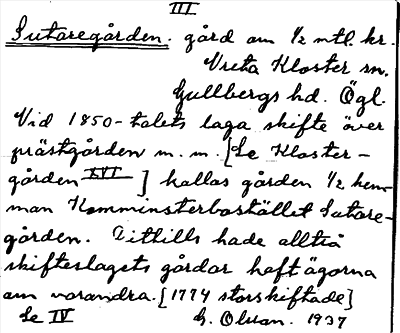 III
Sutaregården. gård om 1/2 mtl. kr.
Vreta Kloster sn.
Gullbergs hd. Ögl.
Vid 1850-talets laga skifte över
prästgården m. m. [Se Kloster-
gården XVI] kallas gården 1/2 hem-
man Komminsterbostället Sutare-
gården. Dittills hade alltså
skifteslagets gårdar haft ägorna
om varandra. [1774 storskiftade]
Se IV G. Olsson. 1937